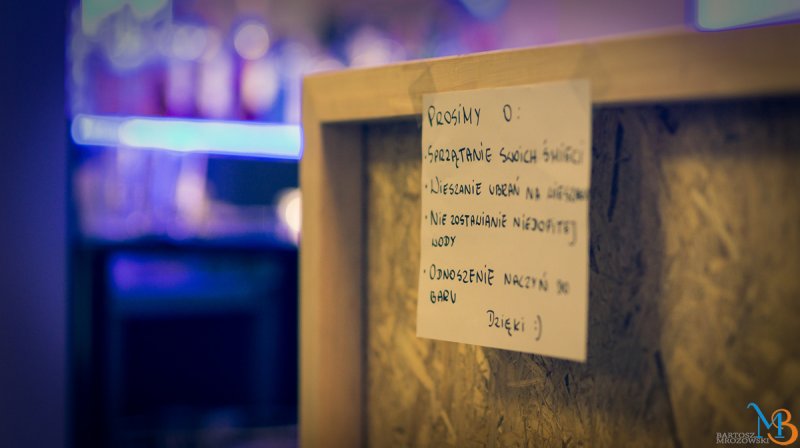 PROSIMY O:
• SPRZĄTANIE SWOICH ŚMIECI
• WIESZANIE UBRAŃ NA WIESZAKU
• NIE ZOSTAWIANIE NIEDOPITEJ
WODY
• ODNOSZENIE NACZYŃ DO
BARU
DZIĘKI :)
MB
BARTOSZ
MROZOWSKI